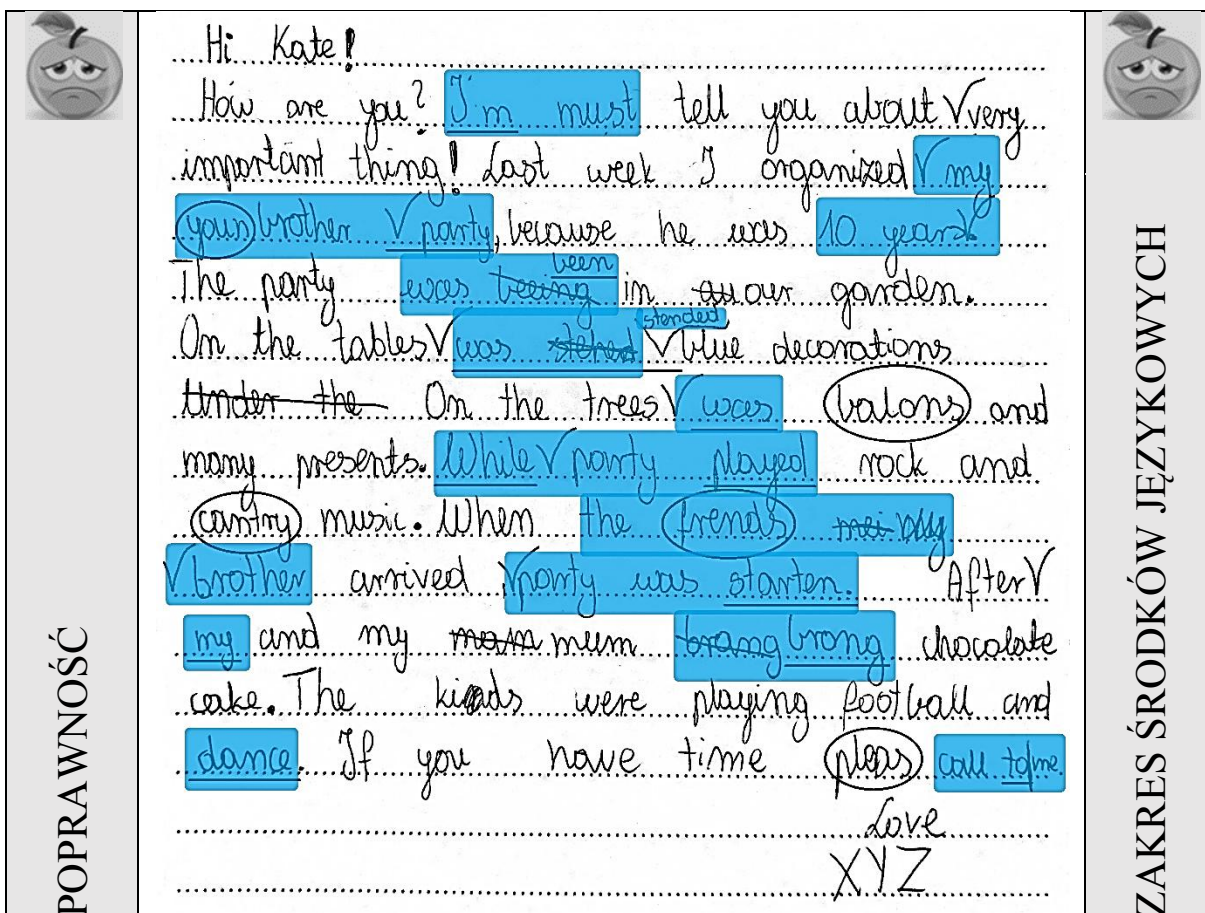 POPRAWNOŚĆ
Hi Kate!
How are you? I'm must tell you about very
important thing! Last week I organized my
youn brother party, because he was 10 years.
been
The party was beeing in our garden.
stended
On the tables was blue decorations
Under the On the trees was balons and
many presents. While party played rock and
cantry music. When the frends my
brother arrived party was starten. After
my and my mam mum brang brong chocolate
cake. The kids were playing football and
dance. If you have time pleas call to me.
Love
XYZ
ZAKRES ŚRODKÓW JĘZYKOWYCH